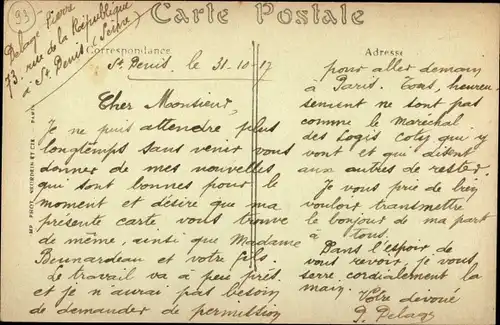 93
Delage Pierre
73, rue de la République
à St Denis (Seine)
Carte Postale
Correspondance
Adresse
St Denis, le 31-10-17
Cher Monsieur,
Je ne puis attendre plus
longtemps sans venir vous
donner de mes nouvelles
qui sont bonnes pour le
moment et désire que ma
présente carte vous trouve
de même, ainsi que Madame
Beunardeau et votre fils.
Le travail va à peu près
et je n'aurai pas besoin
de demander de permission
pour aller demain
à Paris. Tous, heureu-
sement ne sont pas
comme le maréchal
des Logis Coty qui y
vont et qui disent
aux autres de rester.
Je vous prie de bien
vouloir transmettre
le bonjour de ma part
à tous.
Dans l'espoir de
vous revoir, je vous
serre cordialement la
main.
Votre dévoué
P. Delage
IMP. PHOT. NEURDEIN ET CIE. PARIS